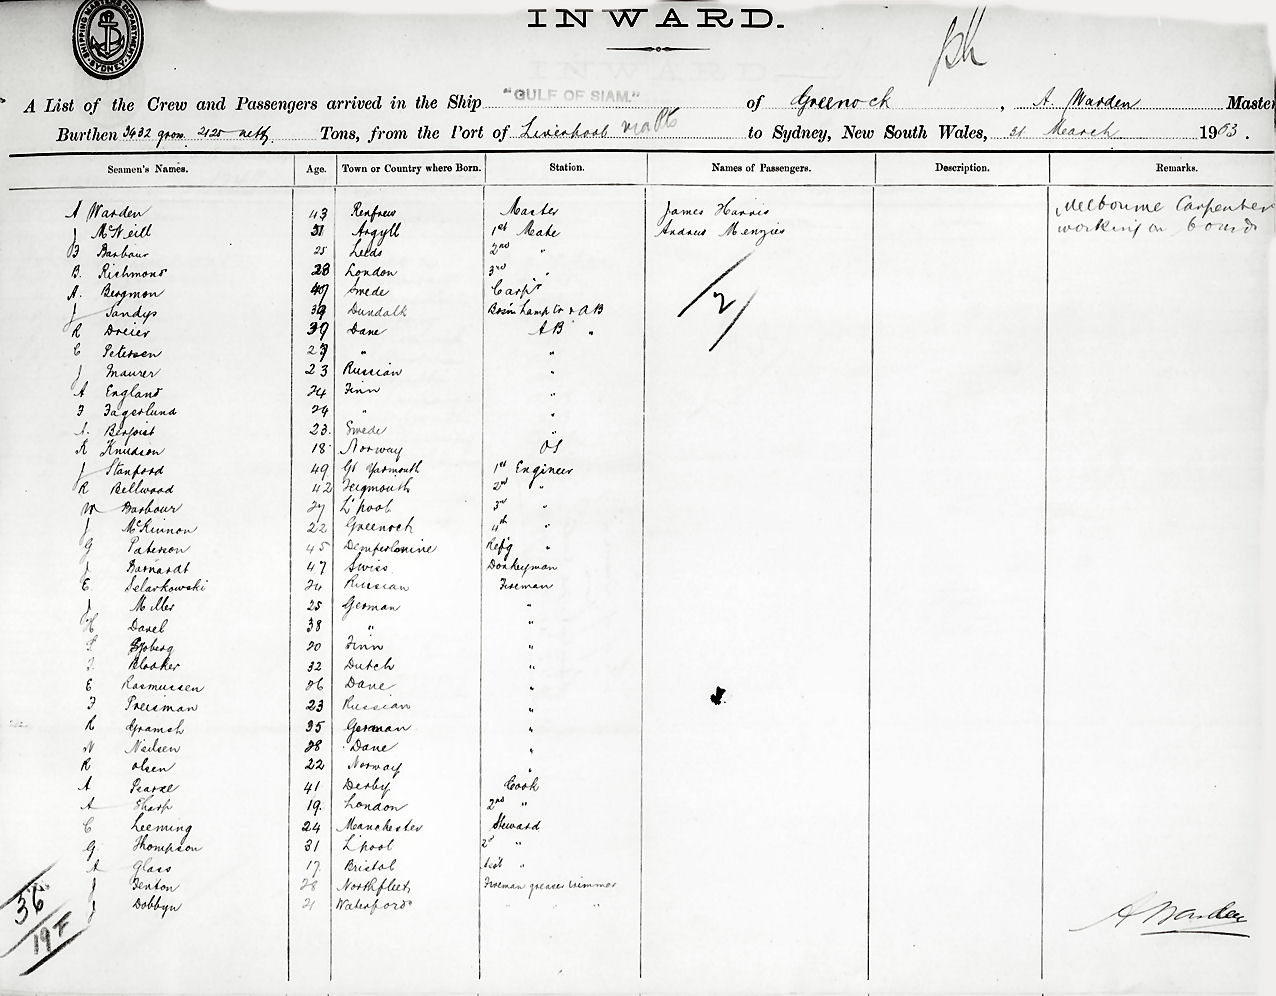 SHIPPING MASTERS DEPARTMENT SYDNEY
INWARD.
A List of the Crew and Passengers arrived in the Ship "GULF OF SIAM." of Greenock, A. Warden Master
Burthen 3432 gross 2125 nett Tons, from the Port of Liverpool via to Sydney, New South Wales, 31 March 1903.
Seamen's Names. Age. Town or Country where Born. Station. Names of Passengers. Description. Remarks.
A Warden 43 Renfrew Master James Harris Melbourne Carpenter
J McNeill 31 Argyll 1st Mate Andrew Menzies working on board
B Barbour 25 Leeds 2nd "
B. Richmond 28 London 3rd "
A. Bergman 47 Swede Carptr
J Sandys 39 Dundalk Bosn Lamptr & AB
R Dreier 39 Dane AB "
C Petersen 27 " "
J Maurer 23 Russian "
A England 24 Finn "
F Fagerlund 24 " "
A. 23. Swede "
K Knudson 18 Norway OS
J Stanford 49 Gt Yarmouth 1st Engineer
R Bellwood 42 2nd "
W Barbour 27 L'pool 3rd "
J McKinnon 22 Greenock 4th "
G Paterson 45 Refg "
J Barnardt 47 Swiss Donkeyman
E. Selarkowski 24 Russian Fireman
J Miller 25 German "
H Davel 38 " "
S Sjoberg 20 Finn "
J Blooker 32 Dutch "
E Rasmussen 26 Dane "
F Preisman 23 Russian "
R Gramsh 35 German "
N Neilsen 28 Dane "
R Olsen 22 Norway "
A Pearse 41 Derby Cook
A Sharp 19. London 2nd "
C Leeming 24 Manchester Steward
G Thompson 31 L'pool 2nd "
A Glass 17 Bristol Asst "
J Fenton 28 Northfleet Fireman greaser trimmer
J Dobbyn 21 Waterford " "
2
36
19 F
A Warden